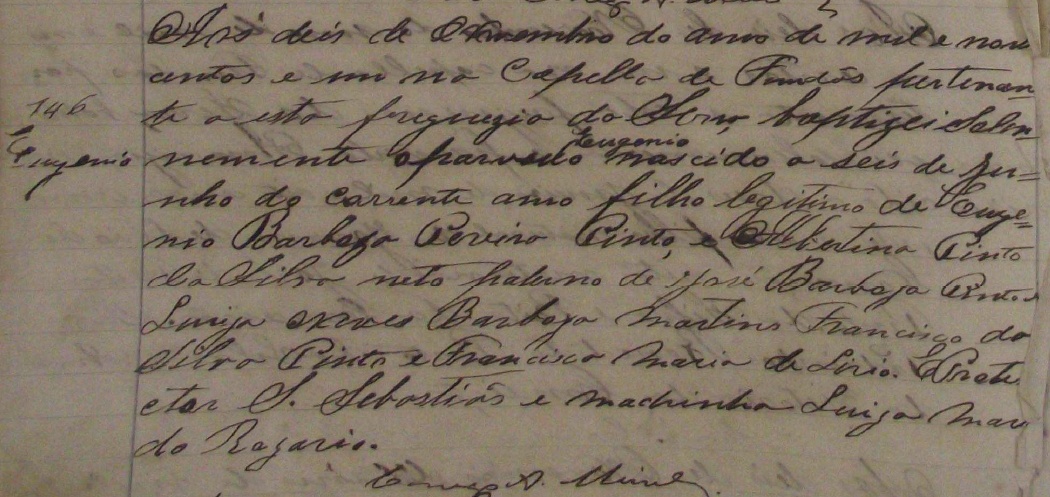 Aos deis de Novembro do anno de mil e nove
centos e um na Capella de Fundão pertencen-
146
te a esta freguezia da Serra, baptizei Solem
Eugenio
Eugenio
nemente o parvulo nascido a seis de Ju=
nho do corrente anno filho legitimo de Euge=
nio Barboza Pereira Pinto, e Albertina Pinto
da Silva neto paterno de José Barboza Pinto e
Luiza Barboza Martins Francisco da
Silva Pinto e Francisca Maria de Lirio. Prote
ctor S. Sebastião e madrinha Luiza Maria
do Rozario.
Conego A.